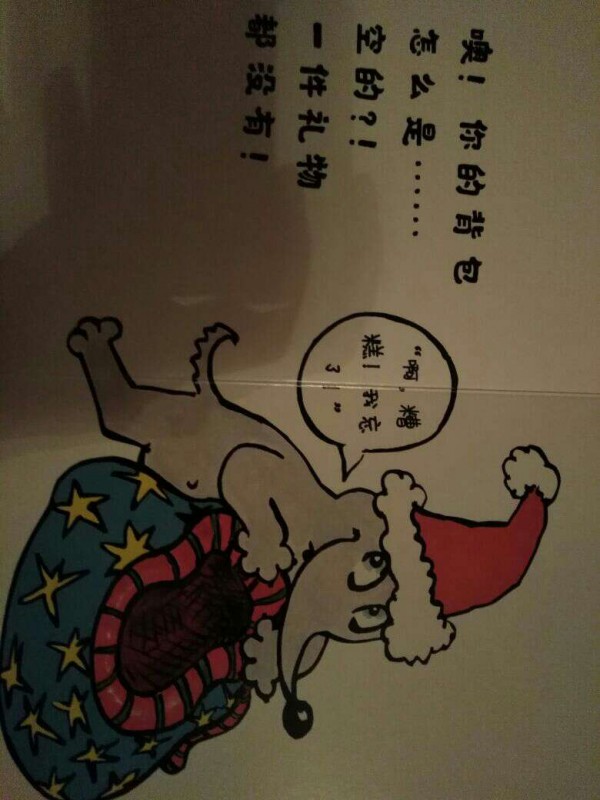 噢！你的背包
怎么是……
空的？！
一件礼物
都没有！
“啊，糟
糕！我忘
了！”